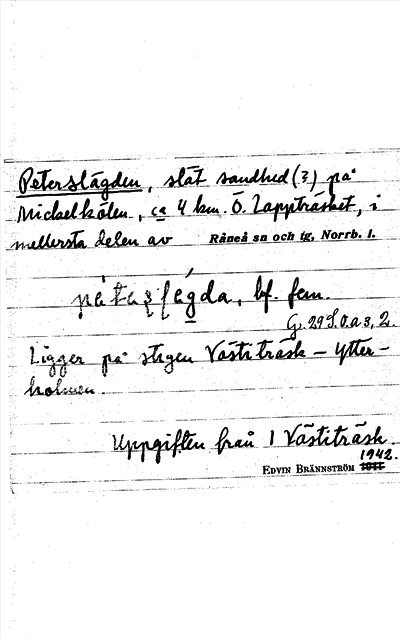 Peterslågden, slät sandhed (?) på
Mickelkölen, ca 4 km. Ö. Lappträsket, i
mellersta delen av Råneå sn och tg, Norrb. l.
bf. fem.
G. 29 S. O. a 3, 2.
Ligger på stigen Västiträsk – Ytter-
holmen.
Uppgiften från 1 Västiträsk.
1942.
EDVIN BRÄNNSTRÖM 1941